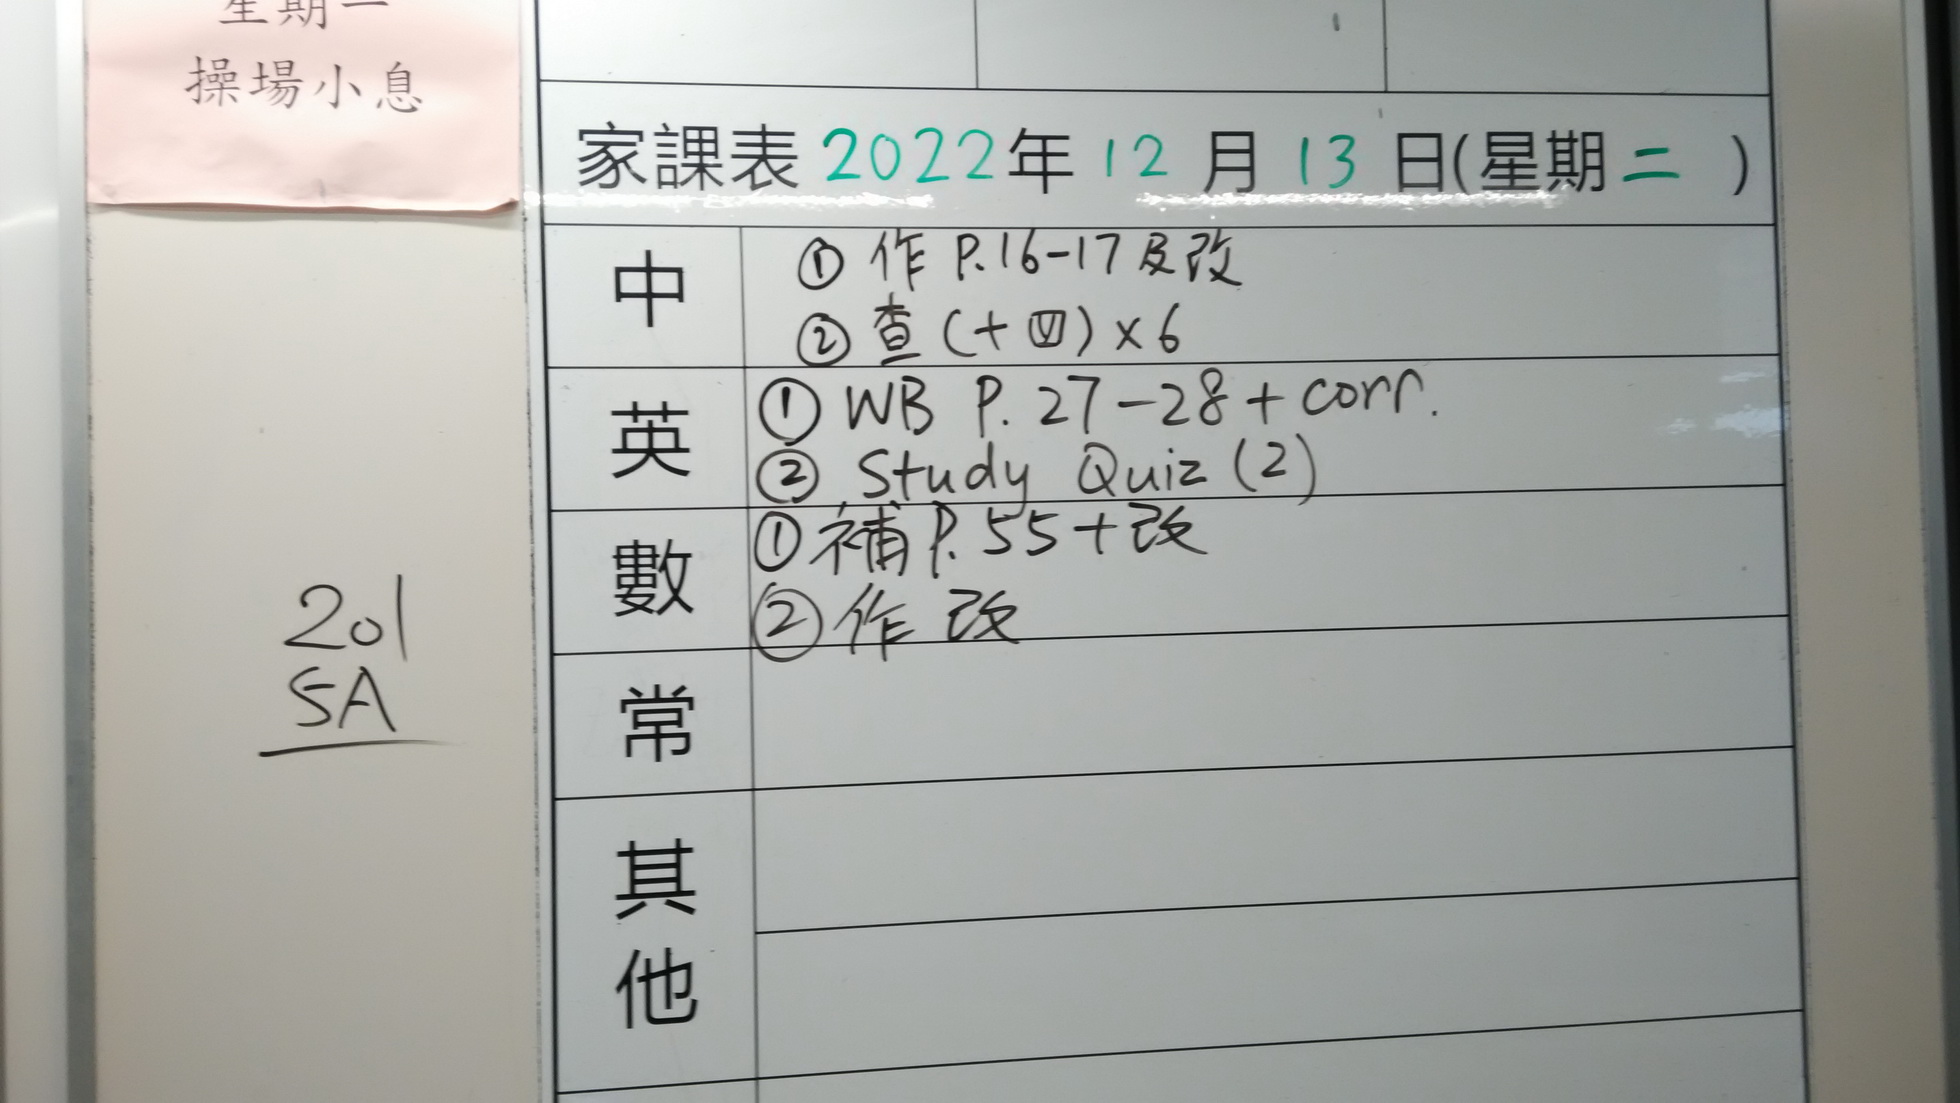 星期一
操場小息
家課表 2022年 12 月 13 日(星期二 )
中
① 作 P.16-17及改
② 查 (十四) x 6
英
① WB P. 27-28 + corr.
② Study Quiz (2)
數
① 補 P. 55 + 改
② 作 改
常
其他
201
5A